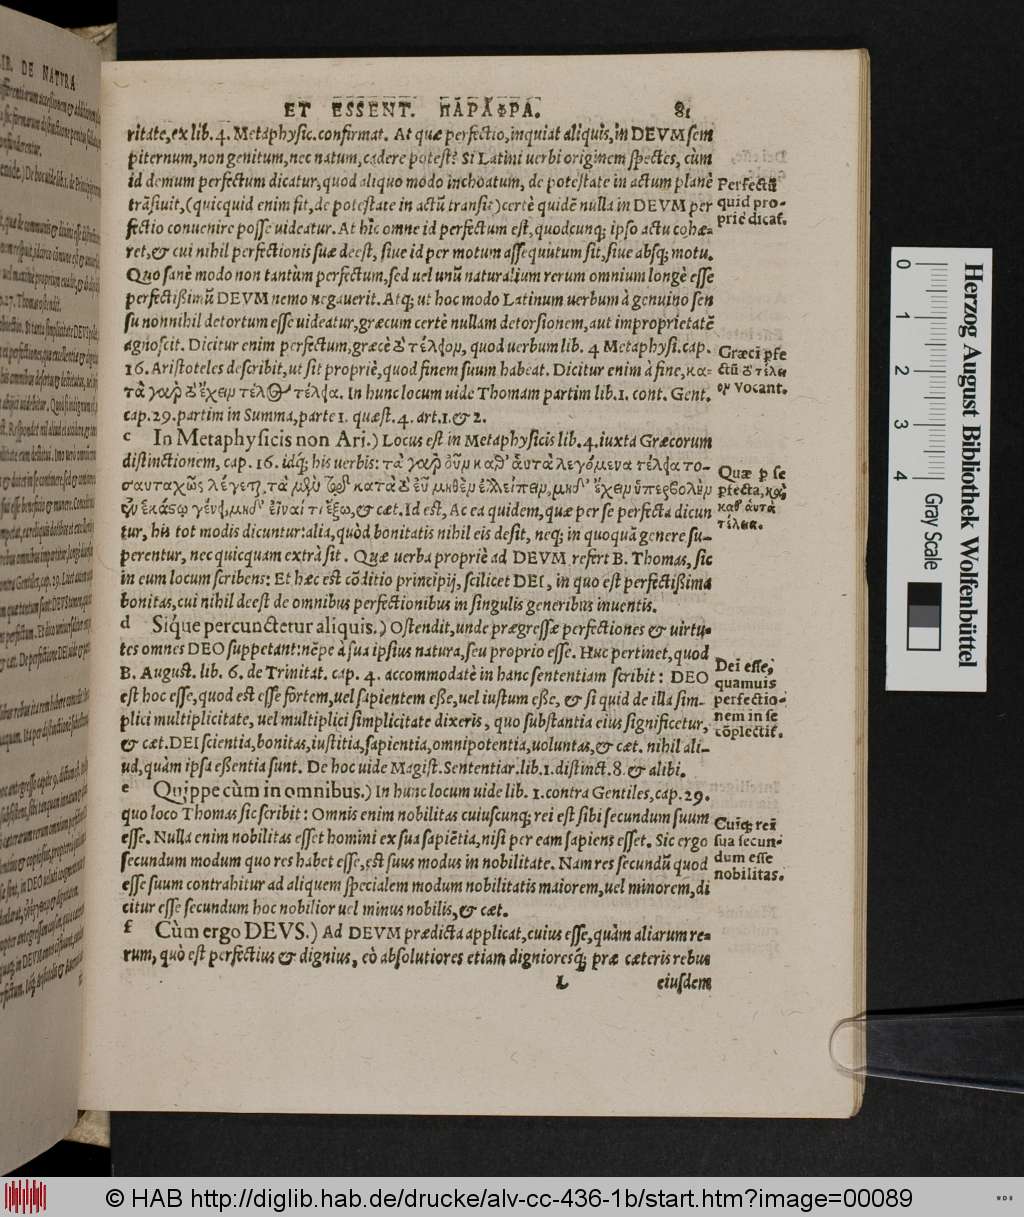 ET ESSENT. ΠΑΡΑΦΡΑ. 81
ritate, ex lib. 4. Metaphysic. confirmat. At quæ perfectio, inquiat aliquis, in DEVM sem
piternum, non genitum, nec natum, cadere potest? Si Latini uerbi originem spectes, cùm
id demum perfectum dicatur, quod aliquo modo inchoatum, de potestate in actum planè
trãsiuit, (quicquid enim fit, de potestate in actũ transit) certè quidẽ nulla in DEVM per
fectio conuenire posse uideatur. At hîc omne id perfectum est, quodcunq; ipso actu cohæ-
ret, & cui nihil perfectionis suæ deest, siue id per motum assequutum sit, siue absq; motu.
Quo sanè modo non tantùm perfectum, sed uel unũ naturalium rerum omnium longè esse
perfectißimũ DEVM nemo negauerit. Atq; ut hoc modo Latinum uerbum à genuino sen
su nonnihil detortum esse uideatur, græcum certè nullam detorsionem, aut improprietatẽ
agnoscit. Dicitur enim perfectum, græcè τὸ τέλειον, quod uerbum lib. 4 Metaphysi. cap.
16. Aristoteles describit, ut sit propriè, quod finem suum habeat. Dicitur enim à fine, κα-
τὰ γὰρ τὸ ἔχειν τέλος τέλεια. In hunc locum uide Thomam partim lib. 1. cont. Gent.
cap. 29. partim in Summa, parte 1. quæst. 4. art. 1. & 2.
c In Metaphysicis non Ari.) Locus est in Metaphysicis lib. 4. iuxta Græcorum
distinctionem, cap. 16. idq; his uerbis: τὰ γὰρ οὖν καθ᾽ ἁυτὰ λεγόμενα τέλεια το-
σαυταχῶς λέγεται, τὰ μὲν τῷ κατὰ τὸ εὖ μηθὲν ἐλλείπειν, μηδ᾽ ἔχειν ὑπερβολὴν
ἐν ἑκάστῳ γένει, μηδ᾽ εἶναί τι ἔξω, & cæt. Id est, Ac ea quidem, quæ per se perfecta dicun
tur, his tot modis dicuntur: alia, quòd bonitatis nihil eis desit, neq; in quoquã genere su-
perentur, nec quicquam extrà sit. Quæ uerba propriè ad DEVM refert B. Thomas, sic
in eum locum scribens: Et hæc est cõditio principij, scilicet DEI, in quo est perfectißima
bonitas, cui nihil deest de omnibus perfectionibus in singulis generibus inuentis.
d Síque percunctetur aliquis.) Ostendit, unde prægressæ perfectiones & uirtu-
tes omnes DEO suppetant: nẽpe à sua ipsius natura, seu proprio esse. Huc pertinet, quod
B. August. lib. 6. de Trinitat. cap. 4. accommodatè in hanc sententiam scribit: DEO
est hoc esse, quod est esse fortem, uel sapientem eße, uel iustum eße, & si quid de illa sim-
plici multiplicitate, uel multiplici simplicitate dixeris, quo substantia eius significetur,
& cæt. DEI scientia, bonitas, iustitia, sapientia, omnipotentia, uoluntas, & cæt. nihil ali-
ud, quàm ipsa eßentia sunt. De hoc uide Magist. Sententiar. lib. 1. distinct. 8. & alibi.
e Quippe cùm in omnibus.) In hunc locum uide lib. 1. contra Gentiles, cap. 29.
quo loco Thomas sic scribit: Omnis enim nobilitas cuiuscunq; rei est sibi secundum suum
esse. Nulla enim nobilitas esset homini ex sua sapiẽtia, nisi per eam sapiens esset. Sic ergo
secundum modum quo res habet esse, est suus modus in nobilitate. Nam res secundũ quod
esse suum contrahitur ad aliquem specialem modum nobilitatis maiorem, uel minorem, di
citur esse secundum hoc nobilior uel minus nobilis, & cæt.
f Cùm ergo DEVS.) Ad DEVM prædicta applicat, cuius esse, quàm aliarum re-
rum, quò est perfectius & dignius, eò absolutiores etiam dignioreśq; præ cæteris rebus
L eiusdem
Perfectũ
quid pro-
priè dicat.
Græci pfe
ctũ τὸ τέλει
ον vocant.
Quæ p se
pfecta, καὶ
καθ᾽ ἁυτὰ
τέλεια.
Dei esse,
quamuis
perfectio-
nem in se
cõplectit.
Cuíq; rei
sua secun-
dum esse
nobilitas.
IR. DE NATVRA
0 1 2 3 4
Herzog August Bibliothek Wolfenbüttel
Gray Scale
© HAB http://diglib.hab.de/drucke/alv-cc-436-1b/start.htm?image=00089